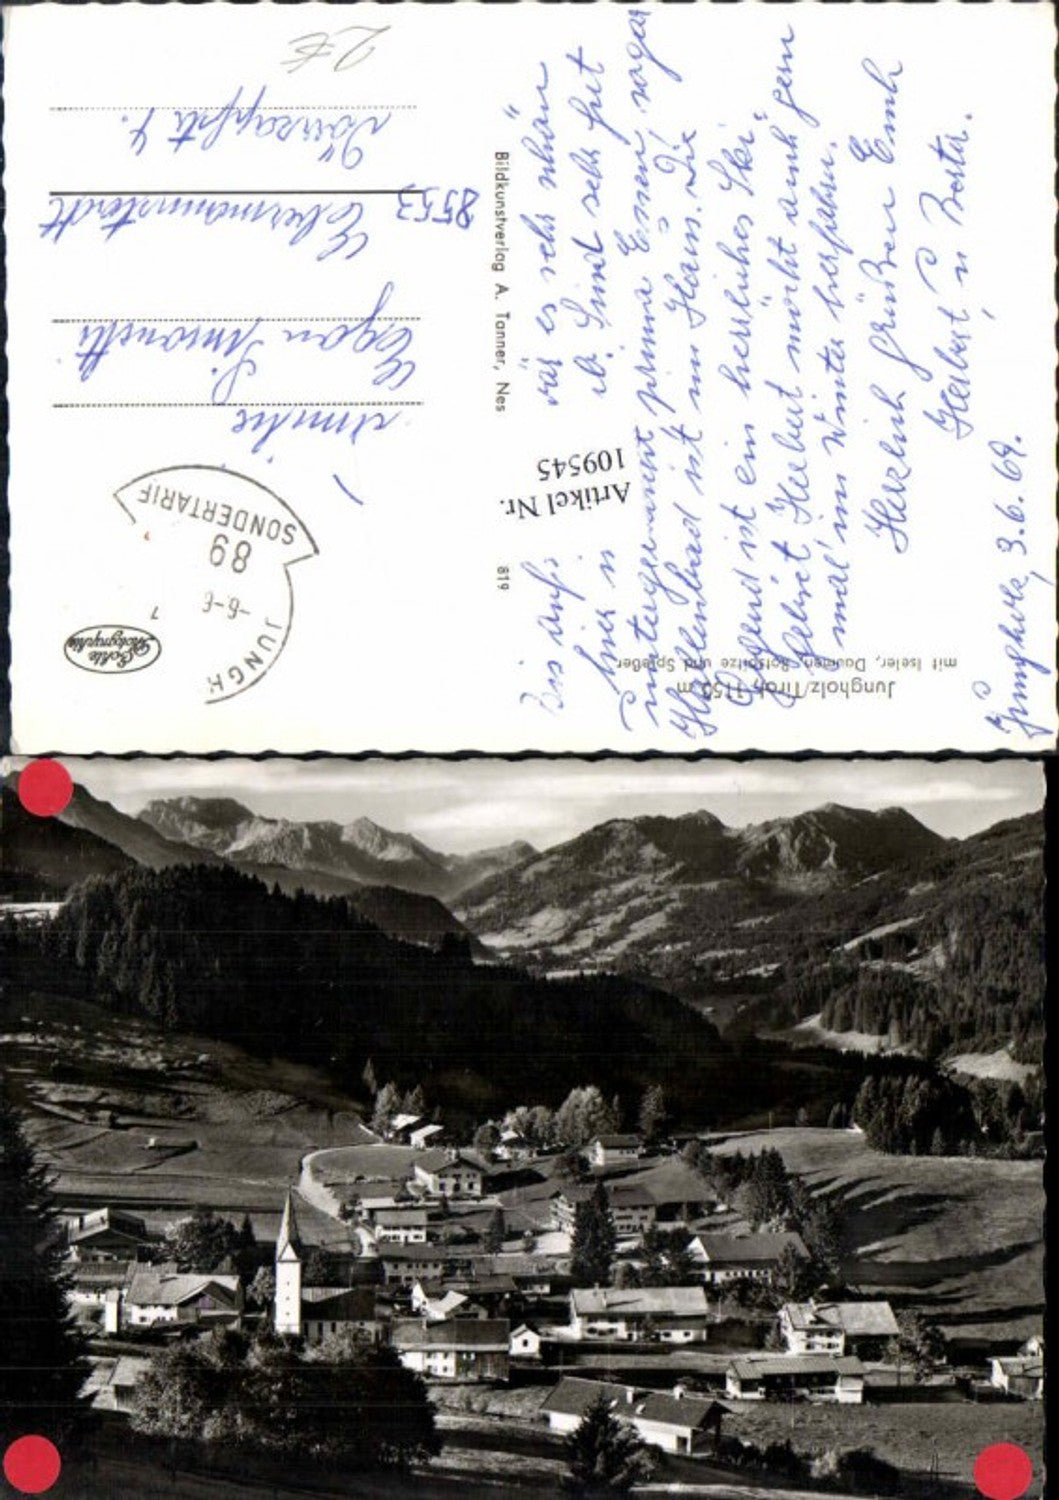 Jungholz/Tirol, 1150 m
mit Iseler, Daumen, Rotspitze und Spießer
Jungholz, 3.6.69.
Bis aufs
hier is
wär es sehr schön
u. Sind sehr gut
untergebracht prima Essen, sogar
Hallenbad ist im Haus. Die
Gegend ist ein herrliches Ski-
gebiet Herbert möcht auch gern
mal im Winter herfahren.
Herzlich grüßen Euch
Herbert u. Berta.
Artikel Nr.
109545
819
Bildkunstverlag A. Tanner, Nes
Echte Photographie
JUNGH
-6-6
89
SONDERTARIF
Familie
Egon Simonetti
8553 Ebermannstadt
4.
2€